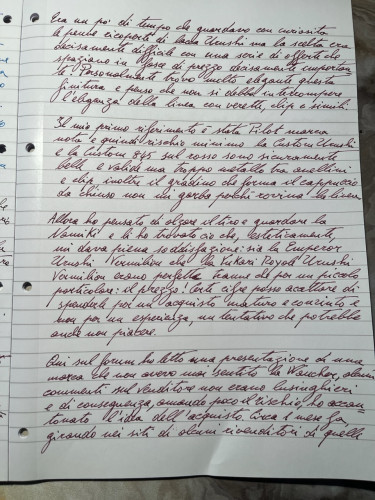 Era un po' di tempo che guardavo con curiosità
le penne ricoperte di lacca Urushi ma la scelta era
decisamente difficile con una serie di offerte che
spaziano in fasce di prezzo decisamente importan
te. Personalmente trovo molto elegante questa
finitura e penso che non si debba interrompere
l'eleganza della linea con verette, clip e simili.
Il mio primo riferimento è stata Pilot marca
nota e quindi rischio minimo la Custom Urushi
e la Custom 845 sul rosso sono sicuramente
belle e valide ma troppo metallo tra anellini
e clip inoltre il gradino che forma il cappuccio
da chiuso non mi garba perché rovina la linea.
Allora ho pensato di alzare il tiro e guardare la
Namiki e lì ho trovato ciò che, esteticamente,
mi dava piena soddisfazione: sia la Emperor
Urushi Vermilion che la Yukari Royale Urushi
Vermilion erano perfette tranne che per un piccolo
particolare: il prezzo! Certe cifre posso accettare di
spenderle per un acquisto maturo e convinto e
non per un esperienza, un tentativo che potrebbe
anche non piacere.
Qui sul forum ho letto una presentazione di una
marca che non avevo mai sentito la Wancher, alcuni
commenti sul venditore non erano lusinghieri
e di conseguenza, amando poco il rischio, ho accan
tonato l'idea dell'acquisto. Circa 1 mese fa,
girando nei siti di alcuni rivenditori di quelle